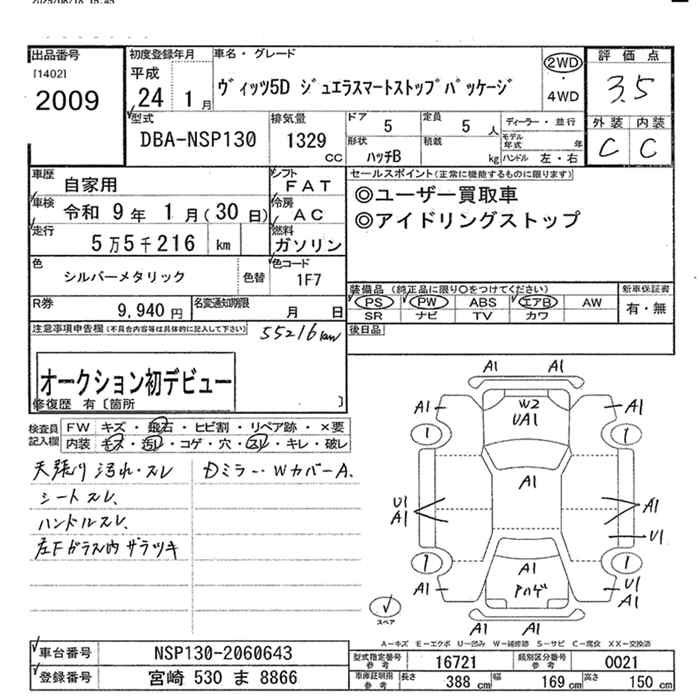 出品番号
[1402]
2009
初度登録年月
平成
24 1月
車名・グレード
ヴィッツ5D ジュエラスマートストップパッケージ
2WD
・
4WD
評価点
3.5
外装 内装
C C
型式
DBA-NSP130
排気量
1329
CC
ドア 5
定員 5 人
形状
ハッチB
積載 kg
ディーラー・並行
モデル年式 年
ハンドル 左・右
車歴
自家用
シフト
FAT
車検
令和 9年 1月(30日)
冷房
AC
走行
5万5千216 km
燃料
ガソリン
色
シルバーメタリック
色替
色コード
1F7
R券
9,940円
名変通知期限
月 日
セールスポイント(正常に機能するものに限ります)
◎ユーザー買取車
◎アイドリングストップ
装備品 (純正品に限り〇をつけてください)
PS PW ABS エアB AW
SR ナビ TV カワ
新車保証書
有・無
後日品
注意事項申告欄(不具合内容等は具体的に記入して下さい)
55216km
オークション初デビュー
修復歴 有〔箇所 〕
検査員記入欄
FW キズ・飛石・ヒビ割・リペア跡・×要
内装 キズ・汚れ・コゲ・穴・スレ・キレ・破レ
天張り汚れ・スレ
シートスレ、
ハンドルスレ
左Fガラス内ザラツキ
Dミラー・WカバーA、
A1 A1
A1 W2 A1
UA1
1 1
A1
U1
A1
A1
U1
1 1
A1 A1 U1
A1
アハゲ
A1 A1
スペア
A-キズ E-エクボ U-凹み W-補修跡 S-サビ C-腐食 XX-交換済
車台番号
NSP130-2060643
登録番号
宮崎 530 ま 8866
型式指定番号
参考
16721
類別区分番号
参考
0021
車庫証明用
参考
長さ 388 cm
幅 169 cm
高さ 150 cm